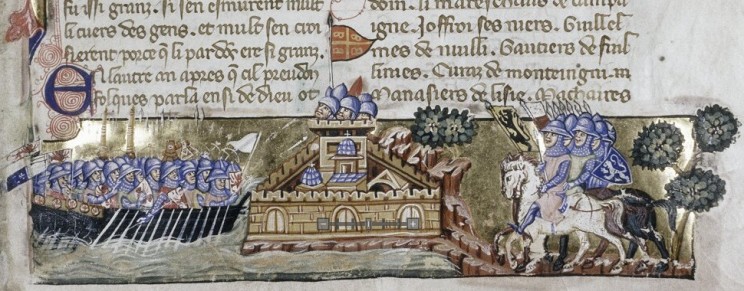 fu issi granz. si sen esmurent mult
li cuers des gens. et mult sen croi
sierent porce q̃ li pardōs ere si granz.
El lautre an apres q̃ cil preudon
folques parla ensi de dieu ot
dom. li mareschaus de campai
igne. Joffroi ses niers. Guillel
mes de nuilli. Gautiers de fuil
limes. Euraz de monteingni. m
Manasiers de lisle. Machaires